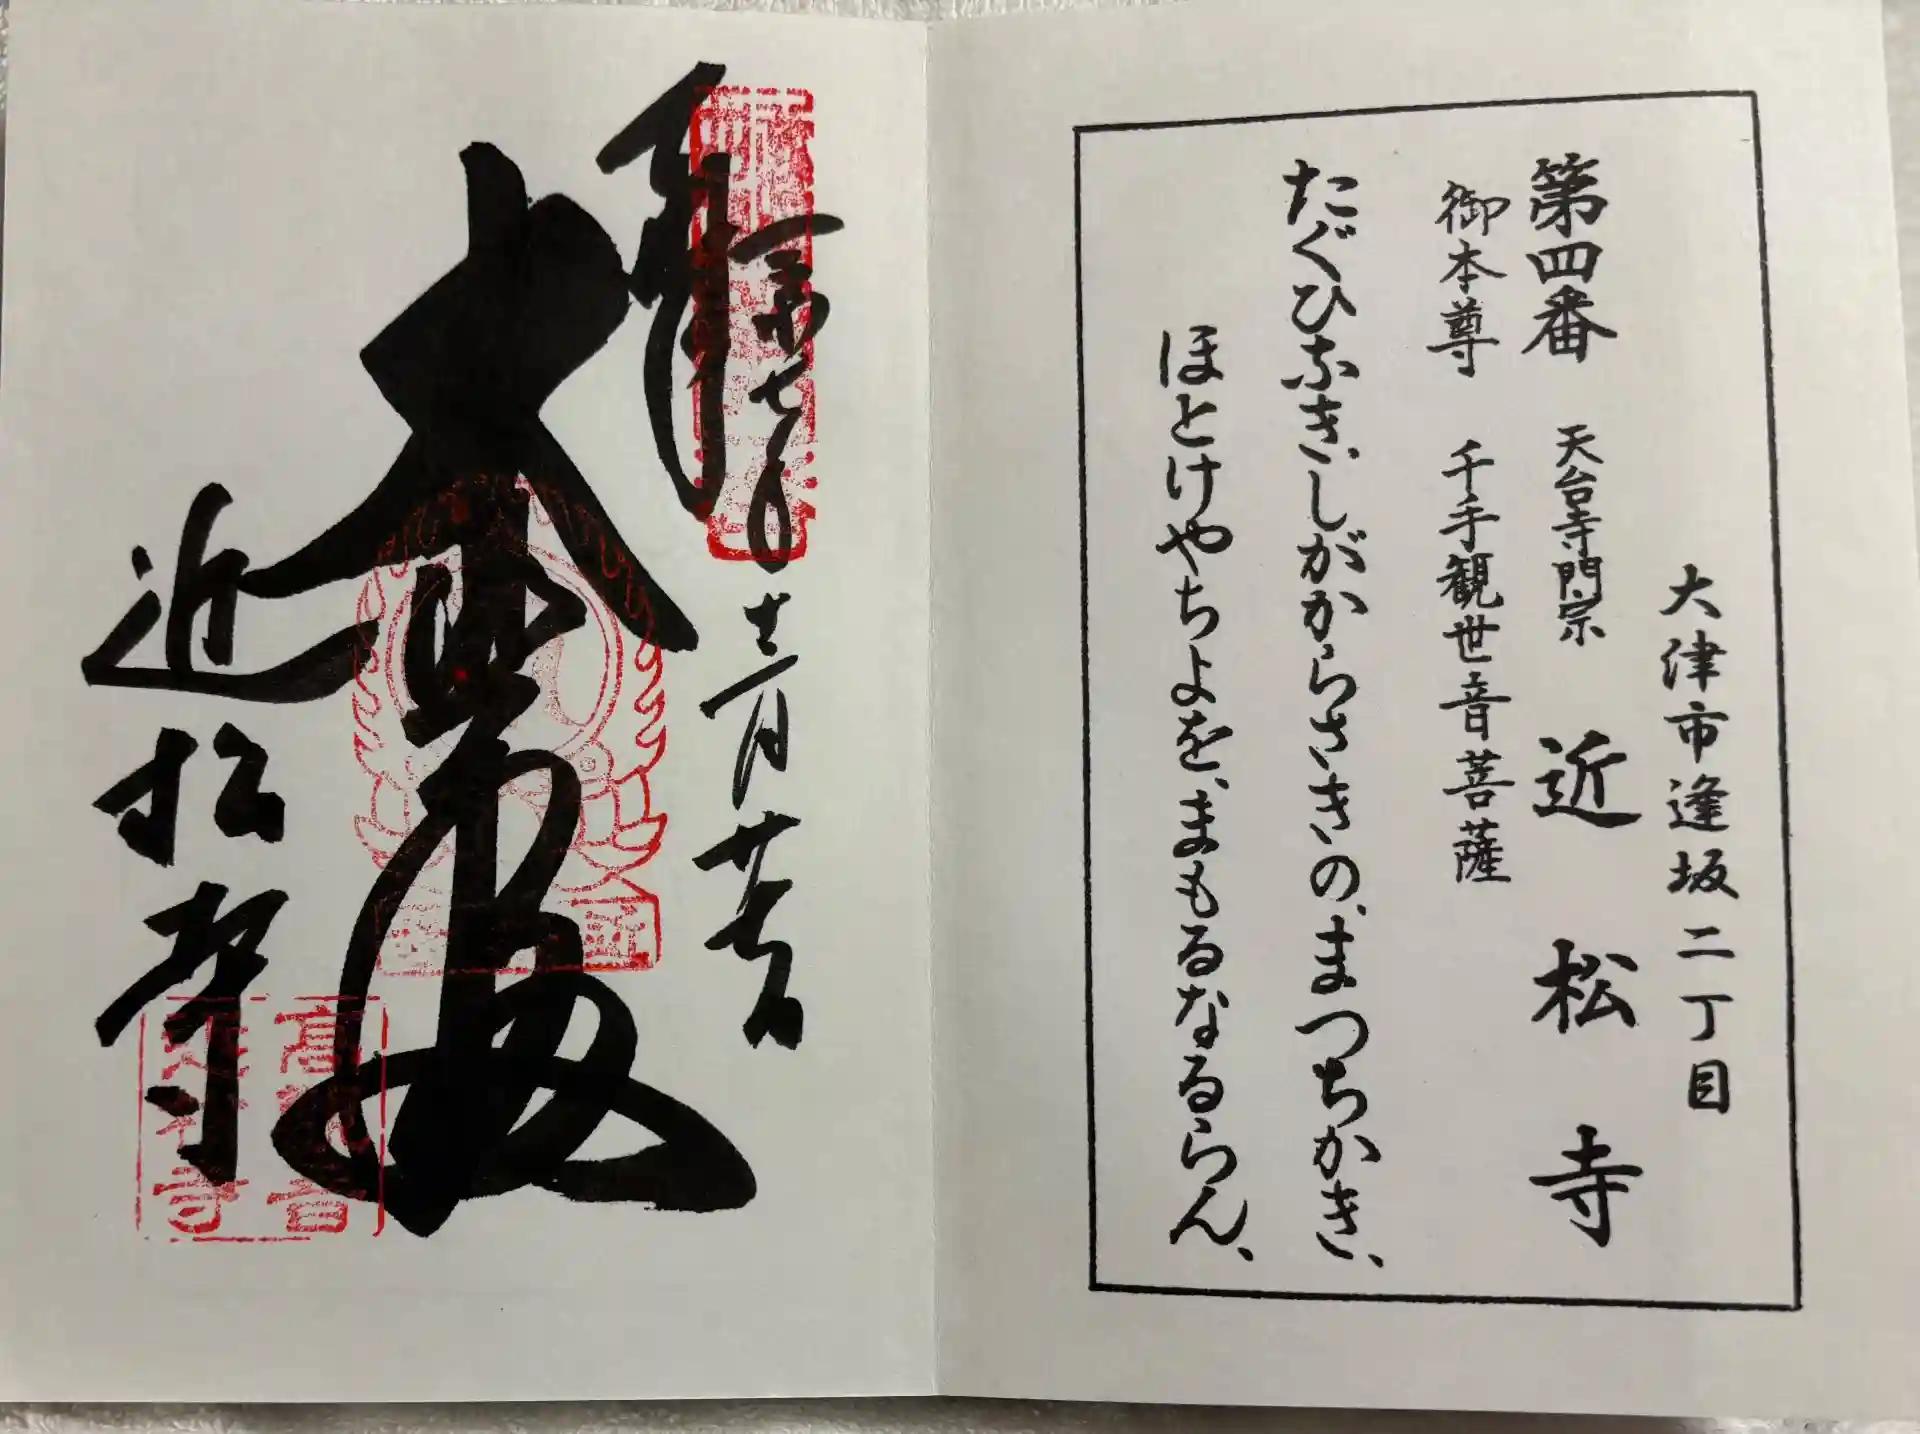 大津市逢坂二丁目
第四番 天台寺門宗 近松寺
御本尊 千手観世音菩薩
たぐひなき、しがからさきの、まつちかき、
ほとけやちよを、まもるなるらん、
奉拝
令和七年 十二月
近松寺
高観音
近松寺